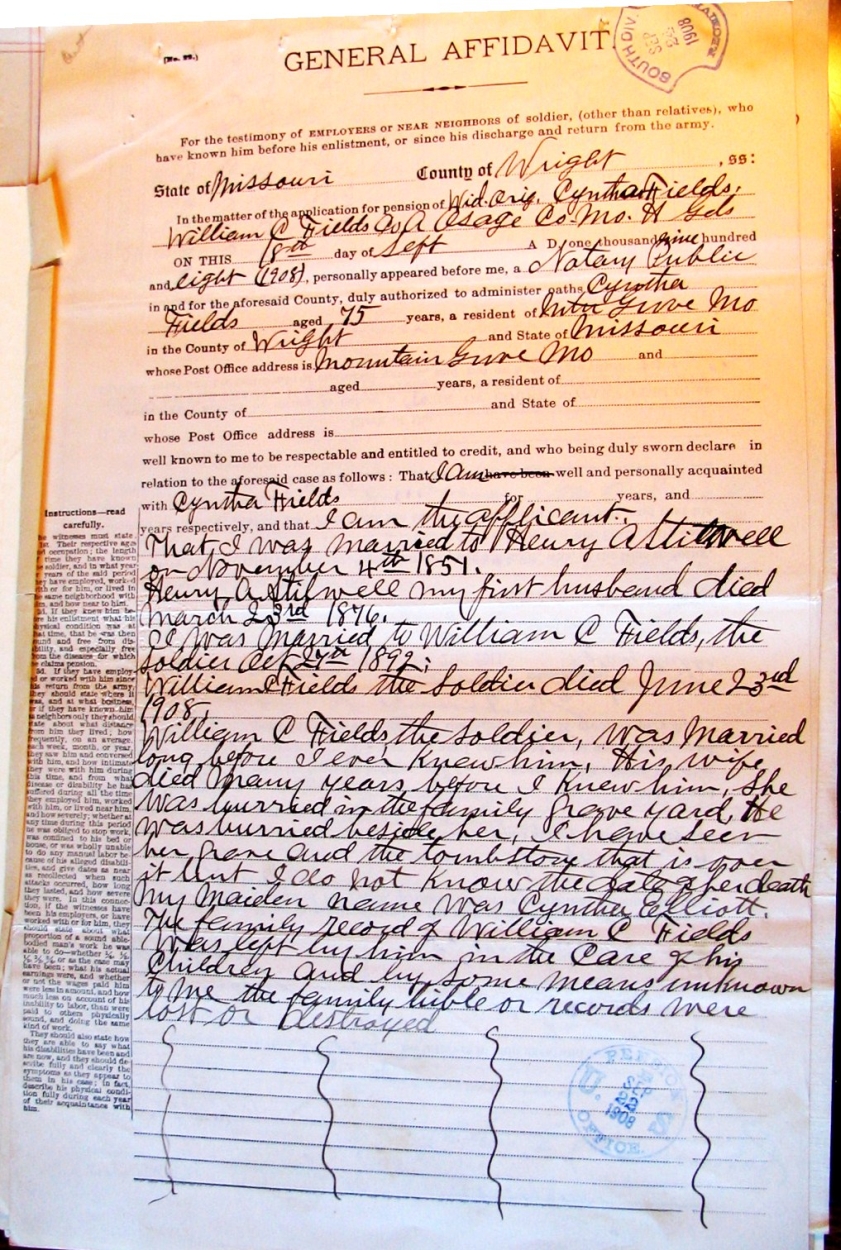 (No. 22.)
GENERAL AFFIDAVIT.
SOUTH DIV.
SEP
23
1908
For the testimony of EMPLOYERS OR NEAR NEIGHBORS of soldier, (other than relatives), who
have known him before his enlistment, or since his discharge and return from the army.
State of Missouri County of Wright, ss:
In the matter of the application for pension of Wid. Orig. Cyntha Fields.
William C Fields Co A Osage Co. Mo. H Gds
ON THIS 18th day of Sept A. D. one thousand nine hundred
and eight (1908), personally appeared before me, a Notary Public
in and for the aforesaid County, duly authorized to administer oaths Cyntha
Fields aged 75 years, a resident of Mtn Grove Mo
in the County of Wright and State of Missouri
whose Post Office address is Mountain Grove Mo and
aged years, a resident of
in the County of and State of
whose Post Office address is
well known to me to be respectable and entitled to credit, and who being duly sworn declare in
relation to the aforesaid case as follows: That I am have been well and personally acquainted
with Cyntha Fields for years, and
years respectively, and that I am the applicant.
That I was married to Henry A Stilwell
on November 4th 1851.
Henry A Stilwell my first husband died
March 23rd 1876.
I was married to William C Fields, the
soldier Oct 27th 1892;
William C Fields the Soldier died June 23rd
1908
William C Fields, the Soldier, was Married
long before I ever knew him, His wife
died many years before I knew him, She
was burried in the family grave yard, He
was burried beside her, I have seen
her grave and the tombstory that is over
it but I do not know the date of her death
My Maiden name was Cyntha Elliott.
The family record of William C Fields
was left by him in the Care of his
Children and by some means unknown
to me the family bible or records were
lost or destroyed
Instructions—read
carefully.
witnesses must state
Their respective ages
occupation; the length
time they have known
soldier, and in what
years of the said period
they have employed, worked
with or for him, or lived in
the same neighborhood with
him, and how near to him.
If they knew him be-
fore his enlistment what his
physical condition was at
that time, that he was then
sound and free from dis-
ability, and especially free
from the diseases for which
he claims pension.
If they have employ-
ed or worked with him since
his return from the army,
they should state where it
was, and at what business,
or if they have known him as
neighbors only they should
state about what distance
from him they lived; how
frequently, on an average,
each week, month, or year,
they saw him and conversed
with him, and how intimate
they were with him during
this time, and from what
disease or disability he has
suffered during all the time
they employed him, worked
with him, or lived near him,
and how severely; whether at
any time during this period
he was obliged to stop work,
was confined to his bed or
house, or was wholly unable
to do any manual labor be-
cause of his alleged disabili-
ties, and give dates as near
as recollected when such
attacks occurred, how long
they lasted, and how severe
they were. In this connec-
tion, if the witnesses have
been his employers, or have
worked with or for him, they
should state about what
proportion of a sound able-
bodied man's work he was
able to do—whether
or as the case may
have been; what his actual
earnings were, and whether
or not the wages paid him
were less in amount, and how
much less on account of his
inability to labor, than were
paid to others physically
sound, and doing the same
kind of work.
They should also state how
they are able to say what
his disabilities have been and
are now, and they should de-
scribe fully and clearly the
symptoms as they appear to
them in his case; in fact,
describe his physical condi-
tion fully during each year
of their acquaintance with
him.
U. S. PENSION OFFICE.
SEP
22
1908